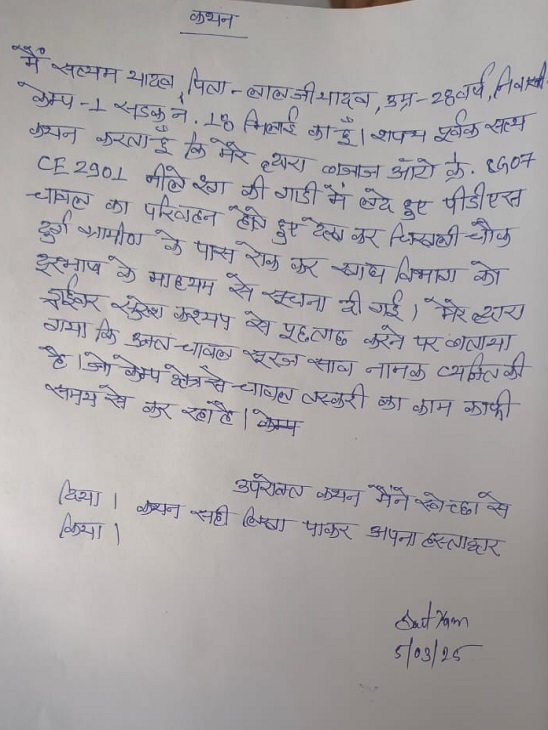 कथन
मैं सत्यम यादव, पिता - लालजी यादव, उम्र - 28 वर्ष, निवासी
केम्प - 1 सडक नं. 18 भिलाई का हूँ। शपथ पूर्वक सत्य
कथन करता हूँ कि मेरे द्वारा बजाज ऑटो क्र. CG07
CE2901 नीले रंग की गाडी में लदे हुए पीडीएस
चावल का परिवहन होते हुए देख कर चिखली चौक
दुर्ग ग्रामीण के पास रोक कर खाद्य विभाग को
दूरभाष के माध्यम से सूचना दी गई। मेरे द्वारा
ड्राईवर सुरेश कश्यप से पूछताछ करने पर बताया
गया कि उक्त चावल सूरज साव नामक व्यक्ति की
है। जो केम्प क्षेत्र से चावल तस्करी का काम काफी
समय से कर रहा है।
उपरोक्त कथन मैंने स्वेच्छा से
दिया। कथन सही लिखा पाकर अपना हस्ताक्षर
किया।
Satyam
5/03/25